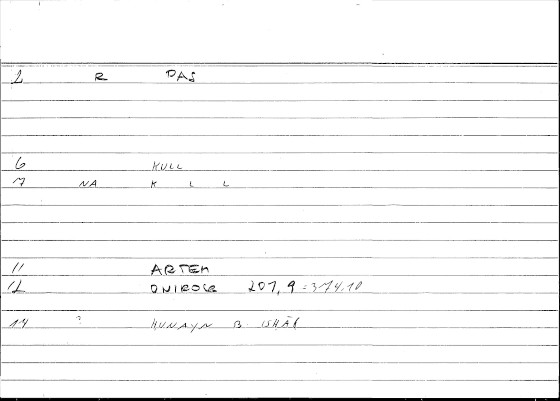 2 R DAS
6 KULL
7 NA K L L
11 ARTEM
12 ONIROCR 207,9 = 374.10
14 ? HUNAYN B ISHĀK